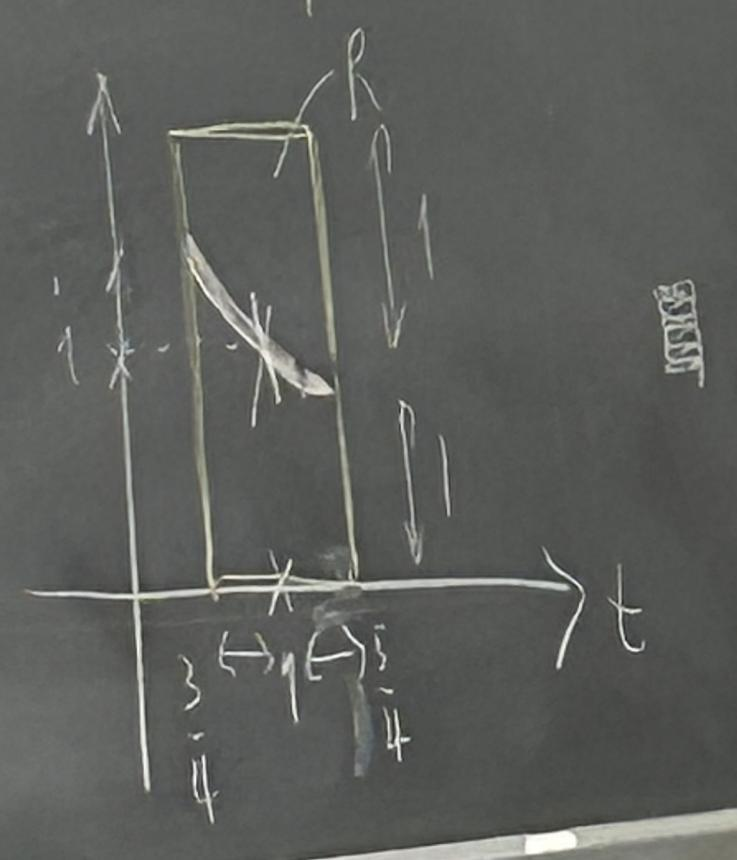 R
1
1
1
t
3/4 1 5/4